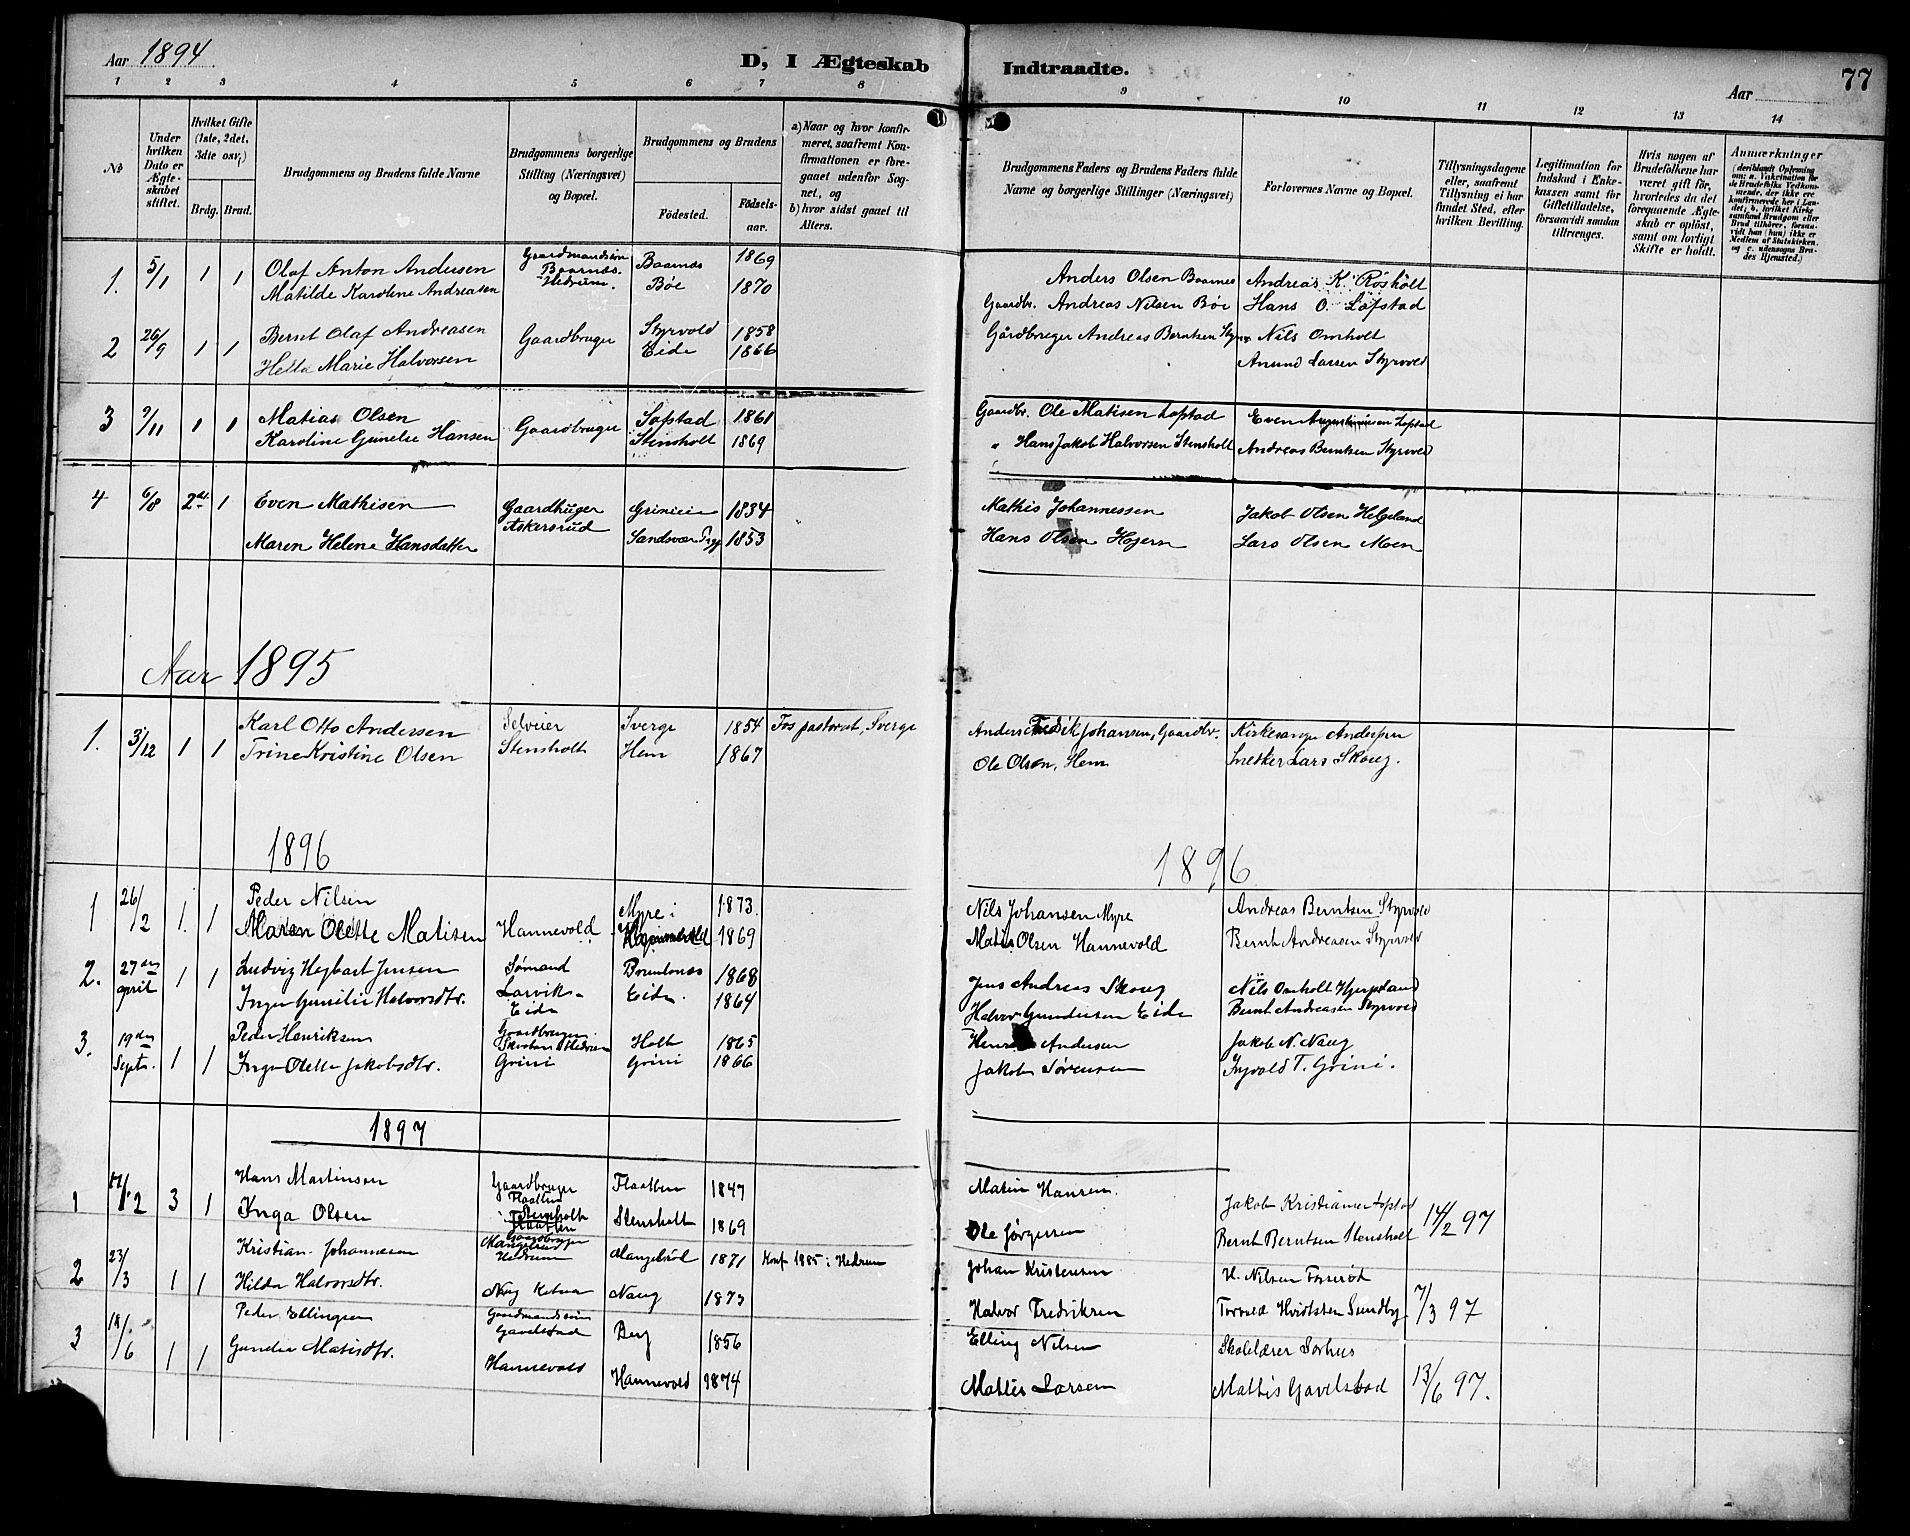 Aar 1894.
D, I Ægteskab Indtraadte.
Aar
77
1 2 3 4 5 6 7 8 9 10 11 12 13 14
No
Under hvilken Dato er Ægteskabet stiftet.
Hvilket Gifte (1ste, 2det, 3die osv.)
Brdg. Brud.
Brudgommens og Brudens fulde Navne
Brudgommens borgerlige Stilling (Næringsvei) og Bopæl.
Brudgommens og Brudens
Fødested.
Fødselsaar.
a) Naar og hvor konfirmeret, saafremt Konfirmationen er foregaaet udenfor Sognet, og
b) hvor sidst gaaet til Alters.
Brudgommens Faders og Brudens Faders fulde Navne og borgerlige Stillinger (Næringsvei)
Forlovernes Navne og Bopæl.
Tillysningsdagene eller, saafremt Tillysning ei har fundet Sted, efter hvilken Bevilling.
Legitimation for Indskud i Enkekassen samt for Giftetilladelse, forsaavidt saadan tiltrænges.
Hvis nogen af Brudefolkene har været gift før, hvorledes da det foregaaende Ægteskab er opløst, samt om lovligt Skifte er holdt.
Anmærkninger
1. 5/1 1 1 Olaf Anton Andersen Gaardmandssøn Baarnæs Hedrum. Baarnæs 1869 Anders Olsen Baarnes Andreas K. Røsholt
Matilde Karoline Andreasen Bøe 1870 Gaardbr. Andreas Nilsen Bøe Hans O. Løfstad
2 26/9 1 1 Bernt Olaf Andreasen Gaardbruger Styrvold 1858 Gårdbruger Andreas Berntsen Nils Omholt
Helta Marie Halvorsen Eide 1866 Anund Larsen Styrvold
3 9/11 1 1 Matias Olsen Gaardbruger Løfstad 1861 Gaardbr. Ole Matisen Løpstad Even Augustinusen Løpstad
Karoline Gunelie Hansen Stensholt 1869 " Hans Jakob Halvorsen Stensholt Andreas Berntsen Styrvold
4 6/8 2det 1 Even Mathisen Gaardbuger Askersrud Grinieie 1834 Mathis Johannessen Jakob Olsen Helgeland
Maren Helene Hansdatter Sandsvær 1853 Hans Olsen Hogern Lars Olsen Moen
Aar 1895
1. 3/12 1 1 Karl Otto Andersen Selveier Sverge 1854 Fos pastorat, Sverge Anders Fredrik Johansen, Gaardbr. Kirkesanger Andersen
Trine Kristine Olsen Stensholt Hem 1867 Ole Olsen, Hem Snedker Lars Skoug.
1896 1896
1 26/2 1. 1 Peder Nilsen Myre i 1873. Nils Johansen Myre Andreas Berntsen Styrvold
Maren Olette Matisen Hannevold 1869 Matis Olsen Hannevold Bernt Andreasen Styrvold
2. 27de april 1 1 Ludvig Hegbart Jensen Sømand Brunlanæs 1868 Jens Andreas Skoug Nils Omholt
Inger Gunilie Halvorsdtr. Larvik - Eide Eide. 1864 Halvor Gundersen Eide Bernt Andreasen Styrvold
3. 19de Septr. 1 1 Peder Henriksen Gaardbruger Hedrum Holt 1865 Andersen Jakob N. Naug
Inger Olette Jakobsdtr. Grini Grini 1866 Jakob Sørensen Ingvald T. Grini.
1897
1 /2 3 1 Hans Martinsen Gaardbruger Flaatten Flaatten 1847 Matin Hansen. Jakob Kristiansen Løpstad 14/2 97
Inga Olsen Stensholt Flaatten Stensholt 1869 Ole Jørgensen Bernt Berntsen Stensholt
2 23/3 1 1 Kristian Johannesen Gaardbruger Mangelrød Hedrum Mangelrød 1871 Konf 1885 i Hedrum Johan Kristensen H. Nilsen
Hilda Halvorsdtr. Naug 1873 Halvor Fredriksen Torvald Hvidtsten Sundby. 7/3 97
3 /6 1 1 Peder Ellingsen Gaardmandssøn Gavelstad Berg 1856 Elling Nilsen Skolelærer Sørhus
Gunda Matisdtr. Hannevold Hannevold 1874 Mattis Larsen Mathis Gavelstad 13/6 97.